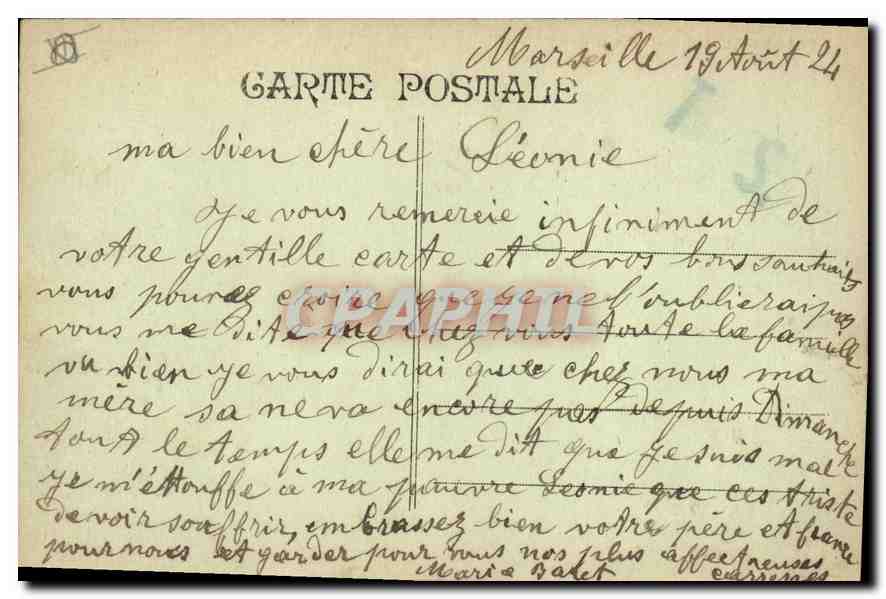 Marseille 19 Août 24
CARTE POSTALE
T
2
ma bien chère Léonie
Je vous remercie infiniment de
votre gentille carte et de vos bons souhaits
vous pouvee croire que je ne l'oublierai pas
vous me dite que chez vous toute la famille
va bien je vous dirai que chez nous ma
mère sa ne va encore pas depuis Dimanche
tout le temps elle me dit que je suis mal
je m'éttouffe à ma pauvre Leonie que ces triste
de voir souffrir, embrassez bien votre père et
pour nous et garder pour vous nos plus affectueuses
Marie caresses
CPAPHIL